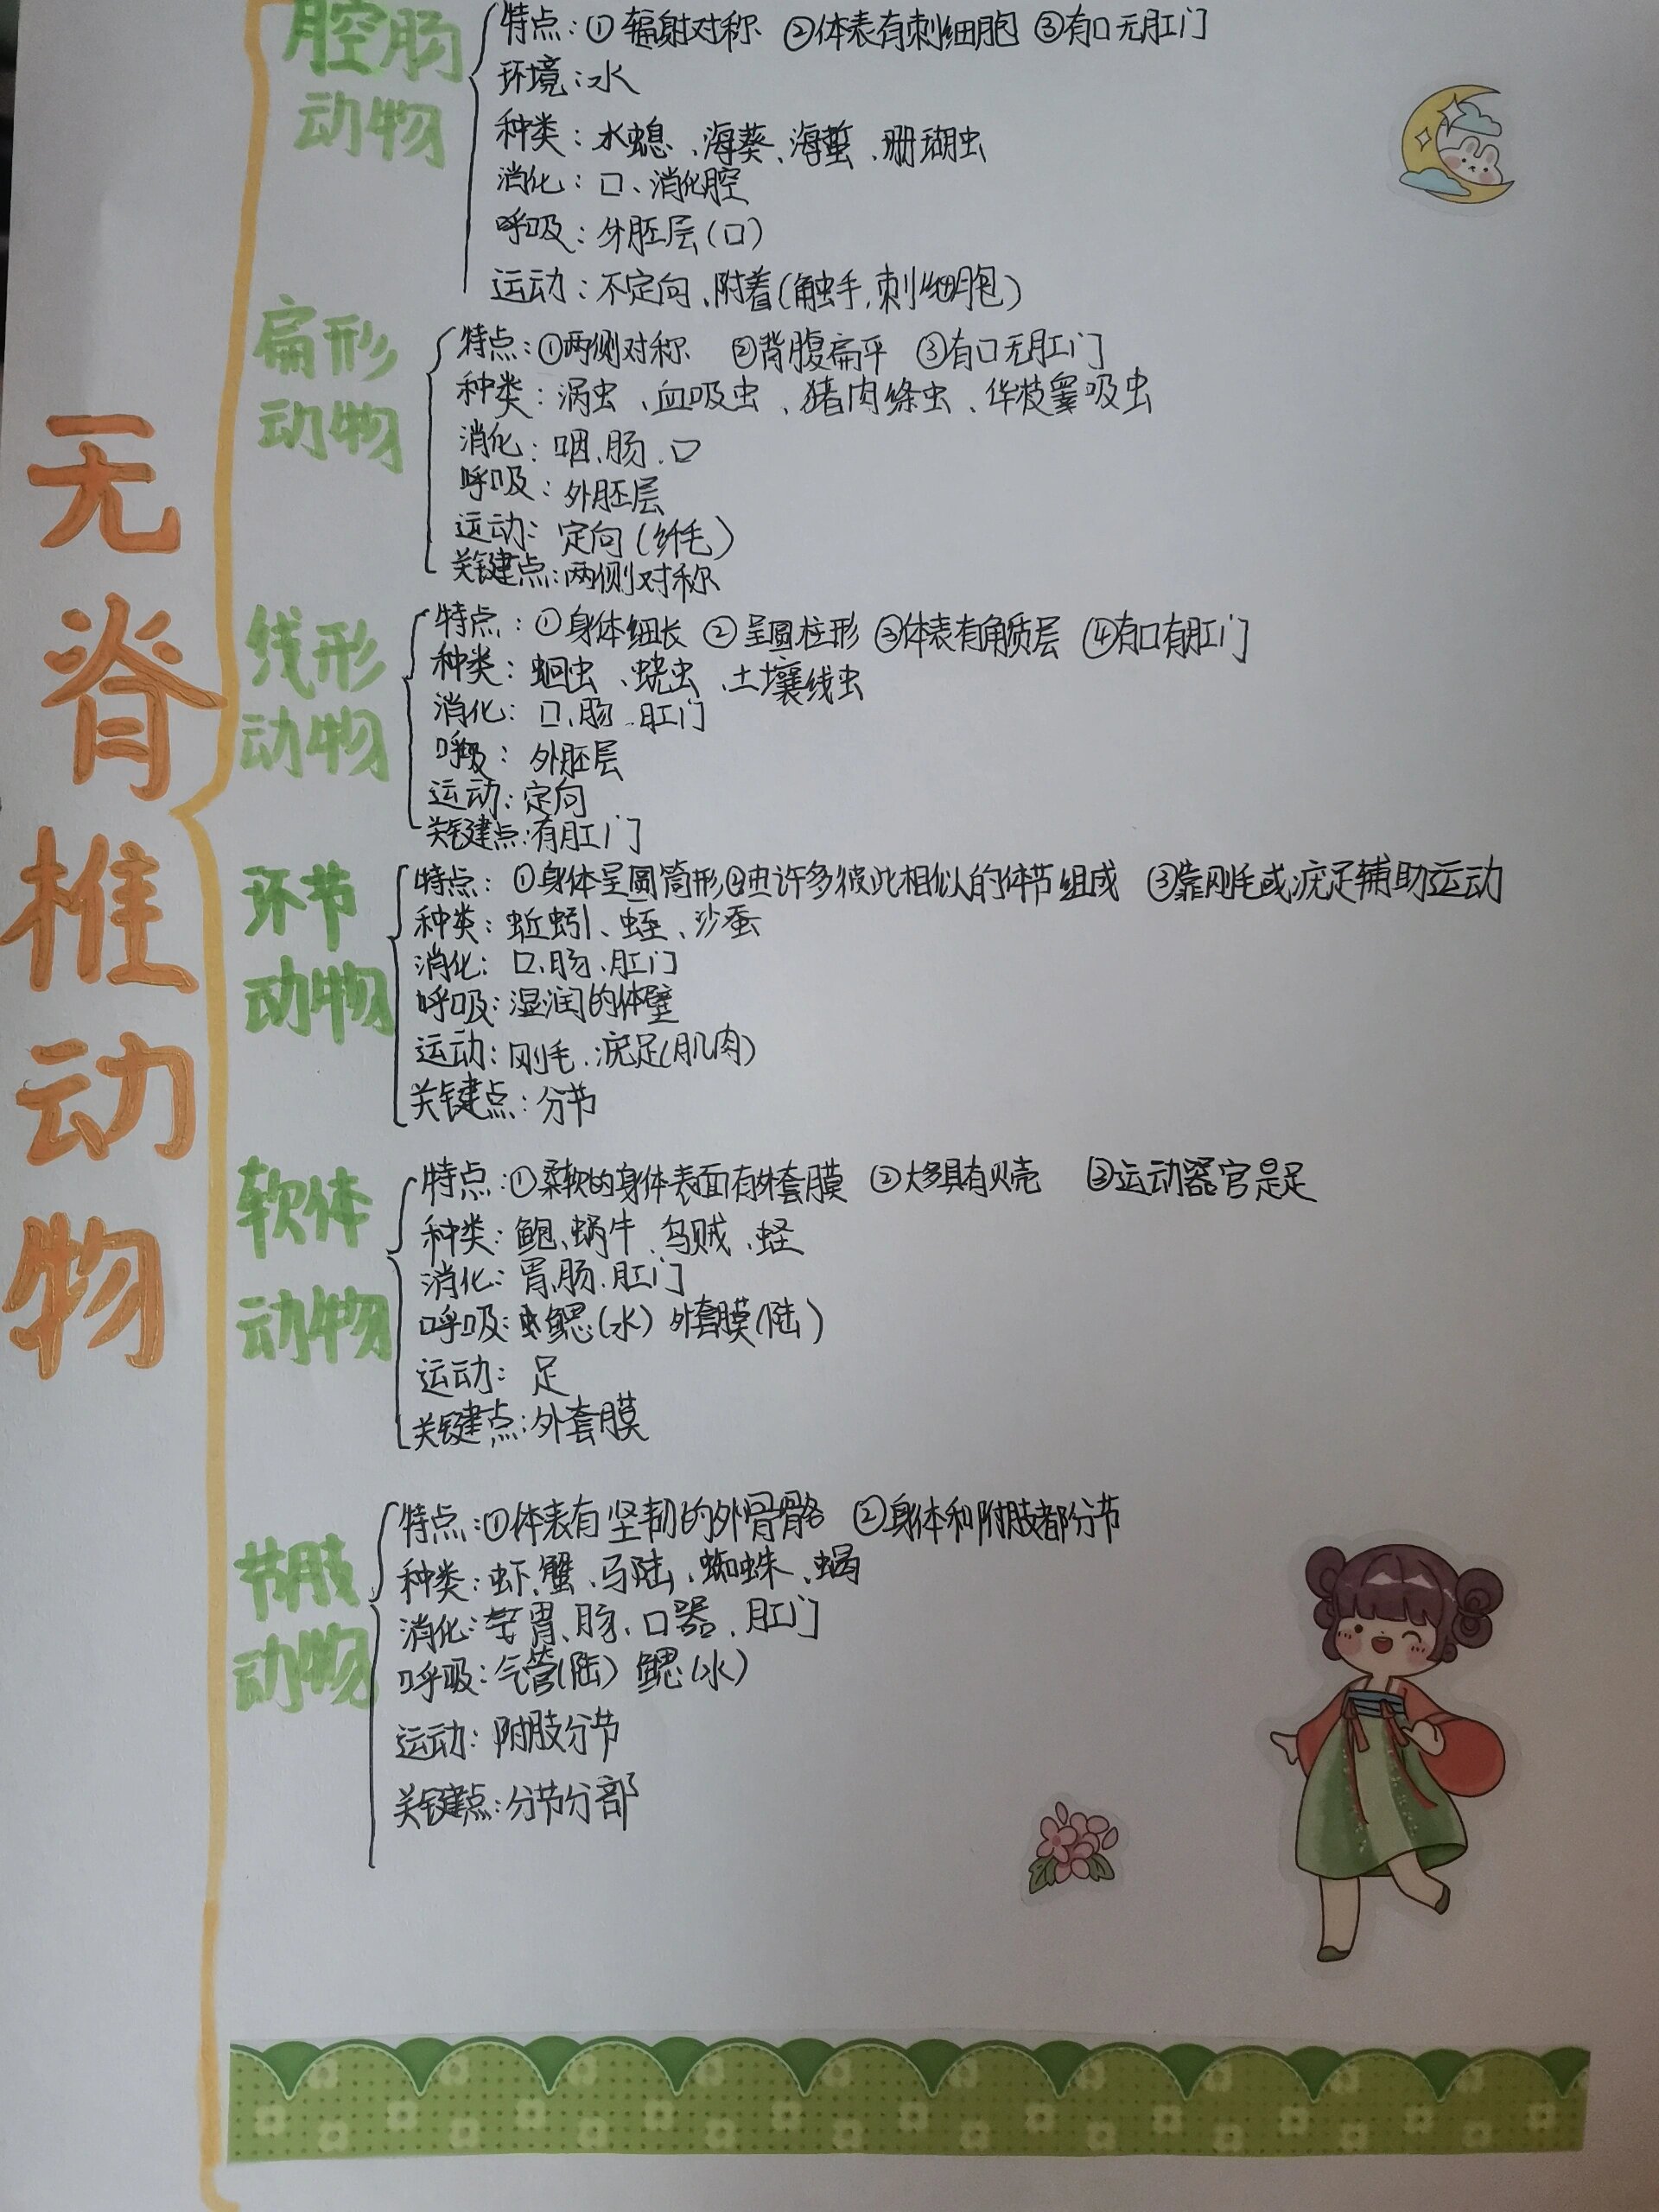 无脊椎动物
腔肠动物
特点:①辐射对称 ②体表有刺细胞 ③有口无肛门
环境:水
种类:水螅、海葵、海蜇、珊瑚虫
消化:口、消化腔
呼吸:外胚层(口)
运动:不定向、附着(触手,刺细胞)
扁形动物
特点:①两侧对称 ②背腹扁平 ③有口无肛门
种类:涡虫、血吸虫、猪肉绦虫、华枝睾吸虫
消化:咽、肠、口
呼吸:外胚层
运动:定向(纤毛)
关键点:两侧对称
线形动物
特点:①身体细长 ②呈圆柱形 ③体表有角质层 ④有口有肛门
种类:蛔虫、蛲虫、土壤线虫
消化:口、肠、肛门
呼吸:外胚层
运动:定向
关键点:有肛门
环节动物
特点:①身体呈圆筒形②由许多彼此相似的体节组成 ③靠刚毛或疣足辅助运动
种类:蚯蚓、蛭、沙蚕
消化:口、肠、肛门
呼吸:湿润的体壁
运动:刚毛、疣足(肌肉)
关键点:分节
软体动物
特点:①柔软的身体表面有外套膜 ②大多具有贝壳 ③运动器官是足
种类:鲍、蜗牛、乌贼、蛏
消化:胃、肠、肛门
呼吸:鳃(水) 外套膜(陆)
运动:足
关键点:外套膜
节肢动物
特点:①体表有坚韧的外骨骼 ②身体和附肢都分节
种类:虾、蟹、马陆、蜘蛛、
消化:胃、肠、口器、肛门
呼吸:气管(陆) 鳃(水)
运动:附肢分节
关键点:分节分部